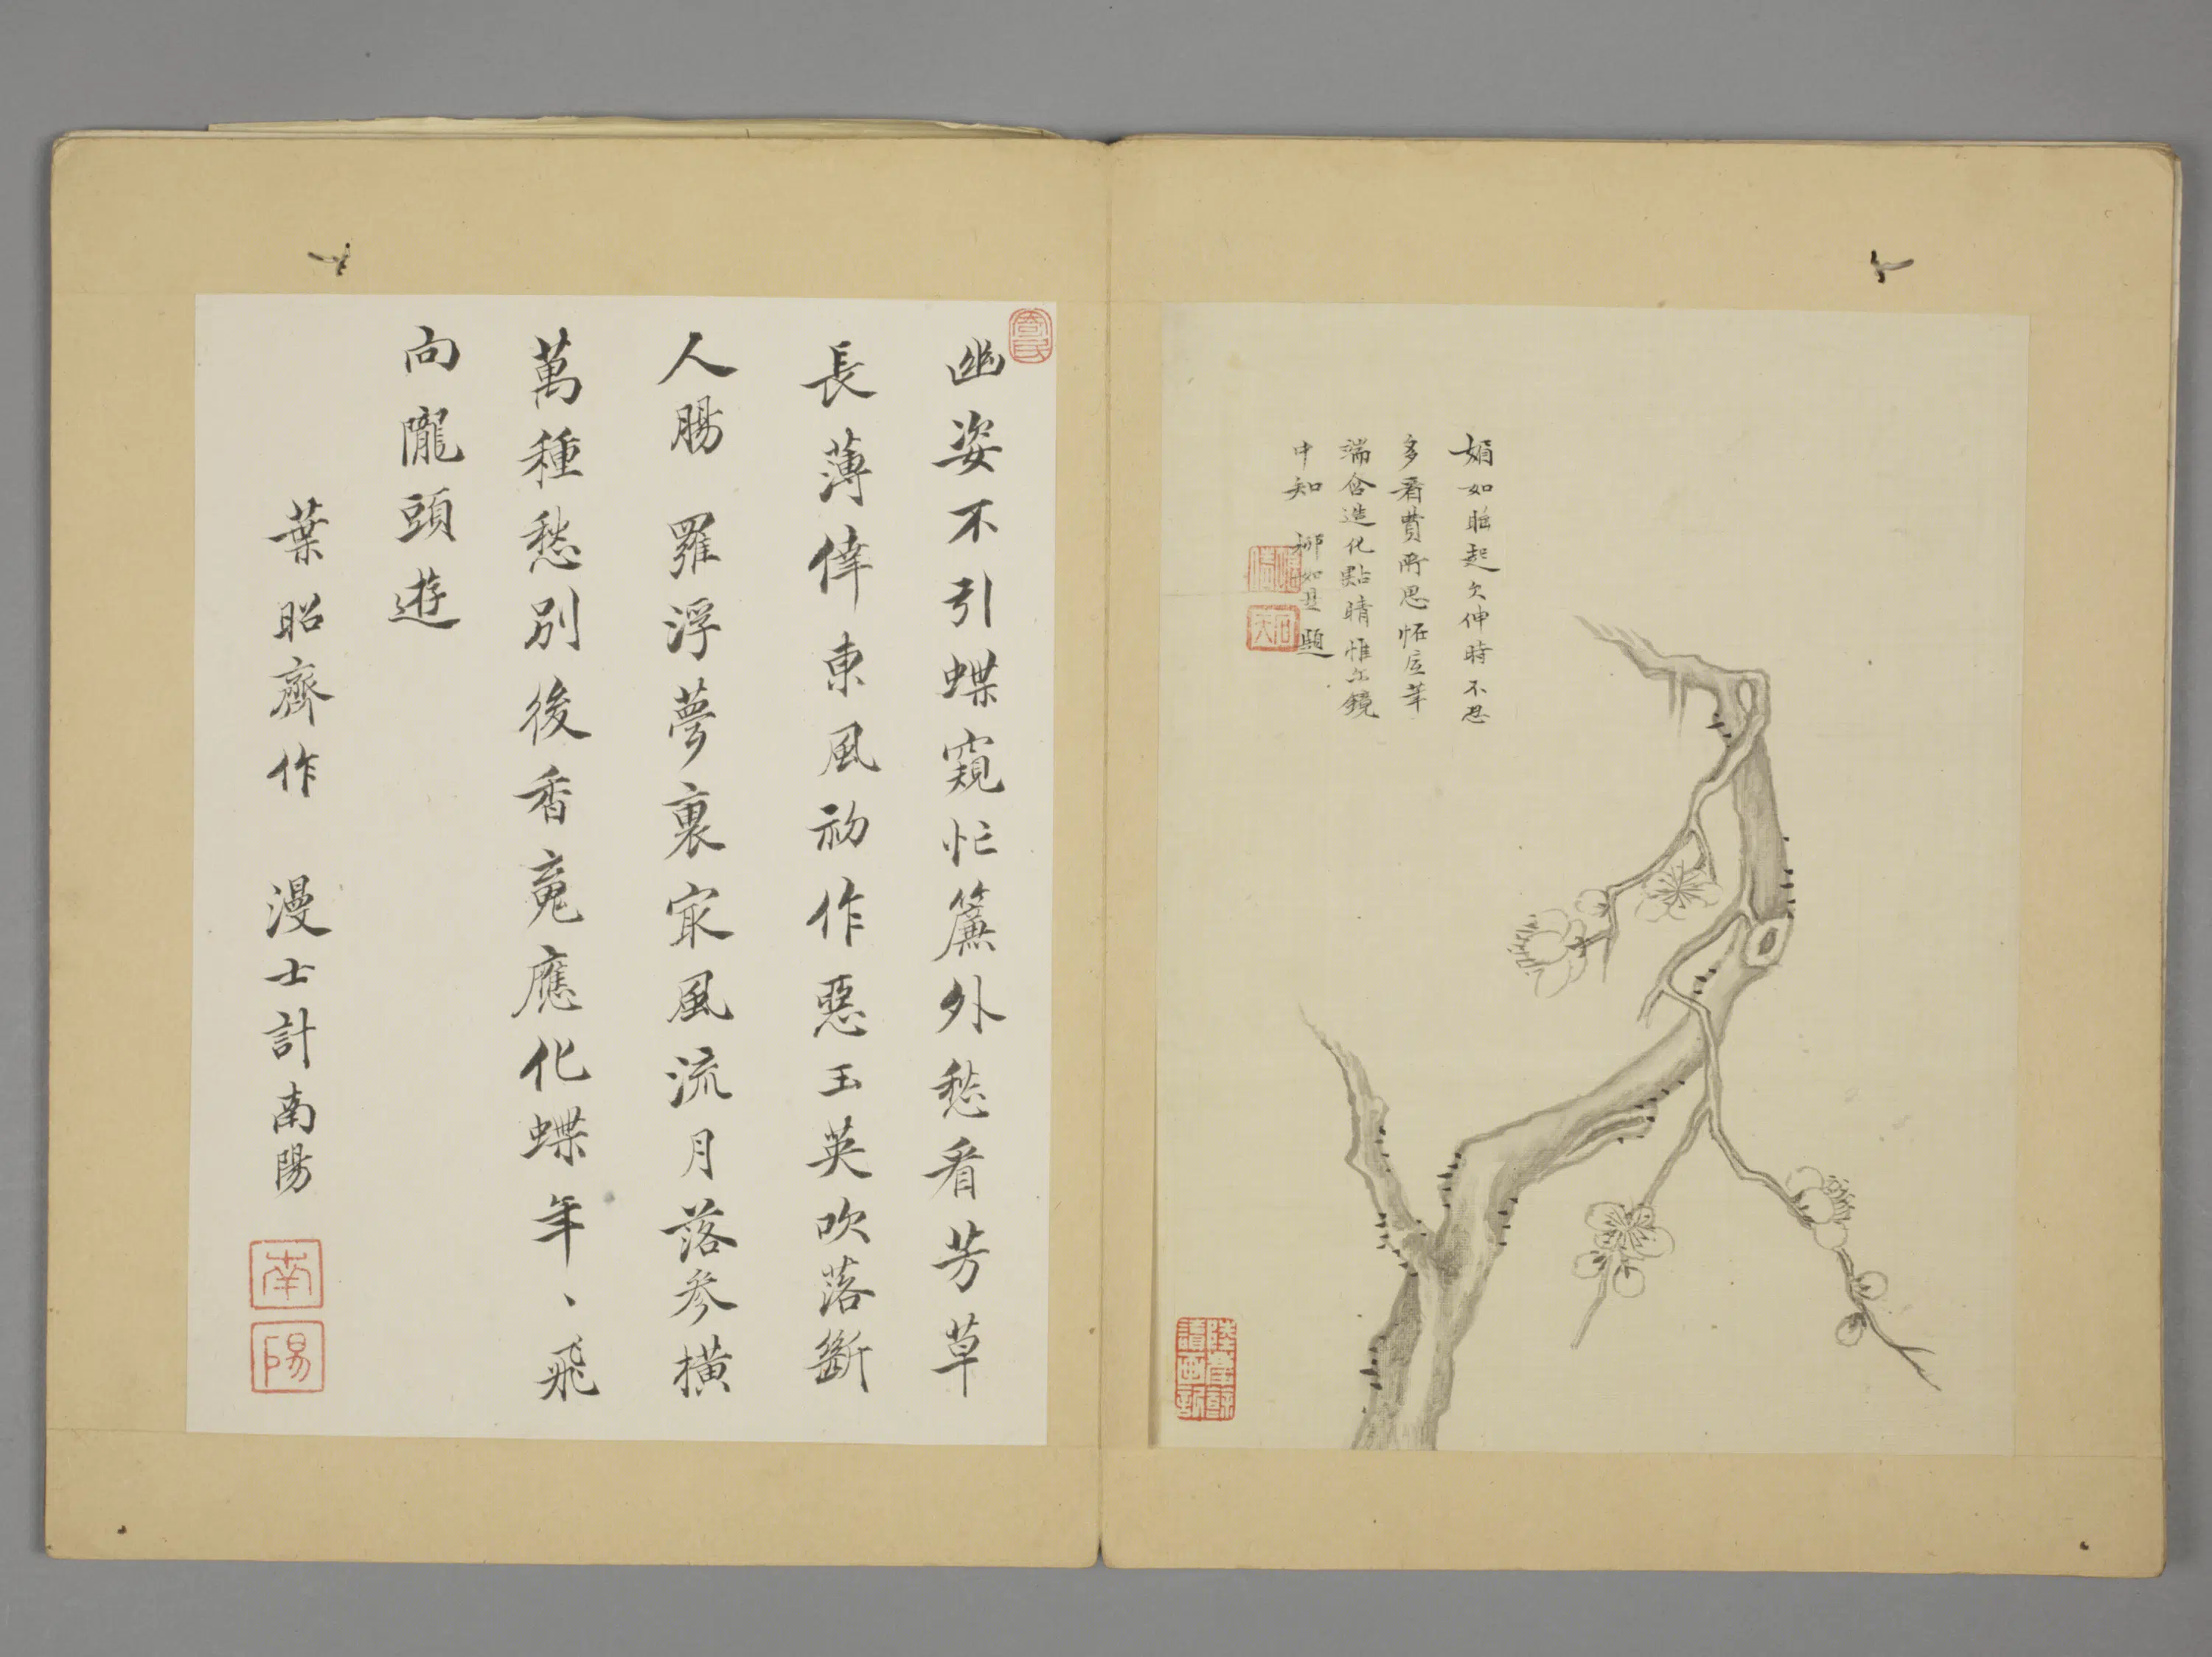 媚如睡起欠伸時不忍
多看費所思怪底筆
端含造化點睛惟尔鏡
中知 柳如是題
讀畫記
幽姿不引蝶窺忙簾外愁看芳草
長薄倖東風初作惡玉英吹落斷
人腸 羅浮夢裏宼風流月落參橫
萬種愁別後香䰟應化蝶年、飛
向隴頭遊
葉昭齊作 漫士計南陽
南
陽